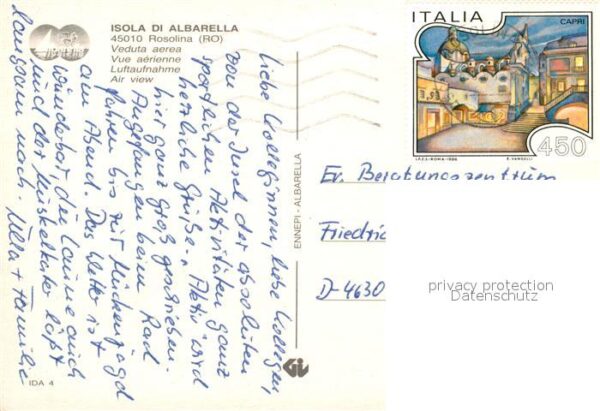 ISOLA DI ALBARELLA
45010 Rosolina (RO)
Veduta aerea
Vue aérienne
Luftaufnahme
Air view
Liebe Kolleginnen, liebe Kollegen,
von der Insel der absoluten
sportlichen Aktivitäten ganz
herzliche Grüße. Aktiv wird
hier ganz groß geschrieben.
Angefangen beim Rad
fahren bis zur Mückenjagd
am Abend. Das Wetter ist
wunderbar, die Laune auch
und der Muskelkater läßt
langsam nach. Ulla + Familie
IDA 4
ENNEPI - ALBARELLA
ITALIA
CAPRI
450
I.P.Z.S.-ROMA-1986
E. VANGELLI
Ev. Beratungszentrum
Friedric
D-4630
privacy protection
Datenschutz